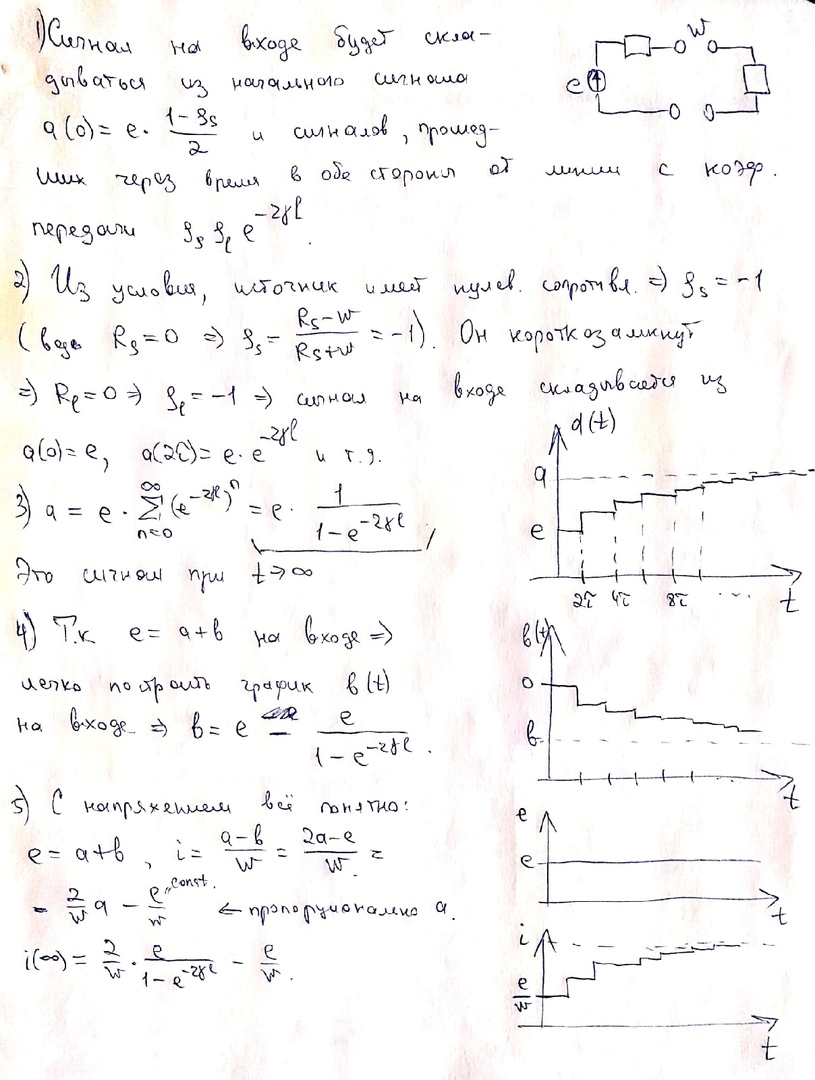 1) Сигнал на входе будет скла-
дываться из начального сигнала
a(0) = e · (1-ρs)/2 и сигналов, прошед-
ших через время в обе стороны от линии с коэф.
передачи ρs ρl e^(-2γl).
e W
2) Из условия, источник имеет нулев. сопротивл. => ρs = -1
(ведь Rs = 0 => ρs = (Rs-W)/(Rs+W) = -1). Он короткозамкнут
=> Rl = 0 => ρl = -1 => сигнал на входе складывается из
a(0) = e, a(2τ) = e · e^(-2γl) и т.д.
3) a = e · ∑_(n=0)^∞ (e^(-2γl))^n = e · 1/(1-e^(-2γl))
Это сигнал при t→∞
4) Т.к e = a+b на входе =>
легко построить график b(t)
на входе => b = e - e/(1-e^(-2γl)).
5) С напряжением всё понятно:
e = a+b, i = (a-b)/W = (2a-e)/W =
= 2/W a - e/W " const. ← пропорционально a.
i(∞) = 2/W · e/(1-e^(-2γl)) - e/W.
a(t)
a
e
2τ 4τ 8τ ... t
b(t)
0
b
t
e
e
t
i
e/W
t